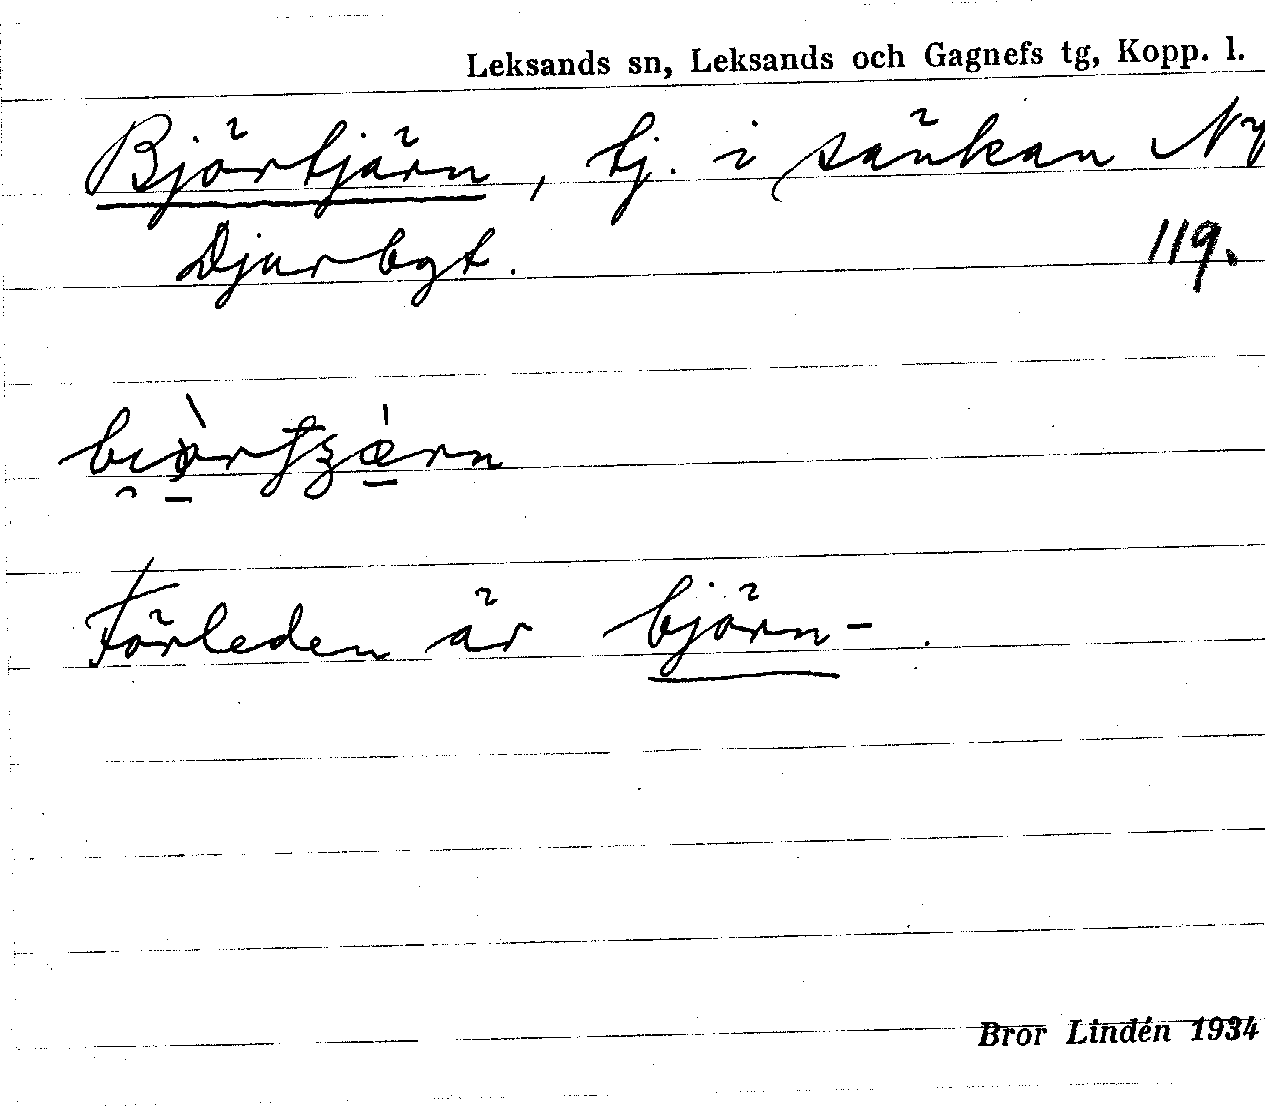 Leksands sn, Leksands och Gagnefs tg, Kopp. l.
Björtjärn, tj. i sänkan NV
Djurbgt. 119.
Förleden är björn-.
Bror Lindén 1934